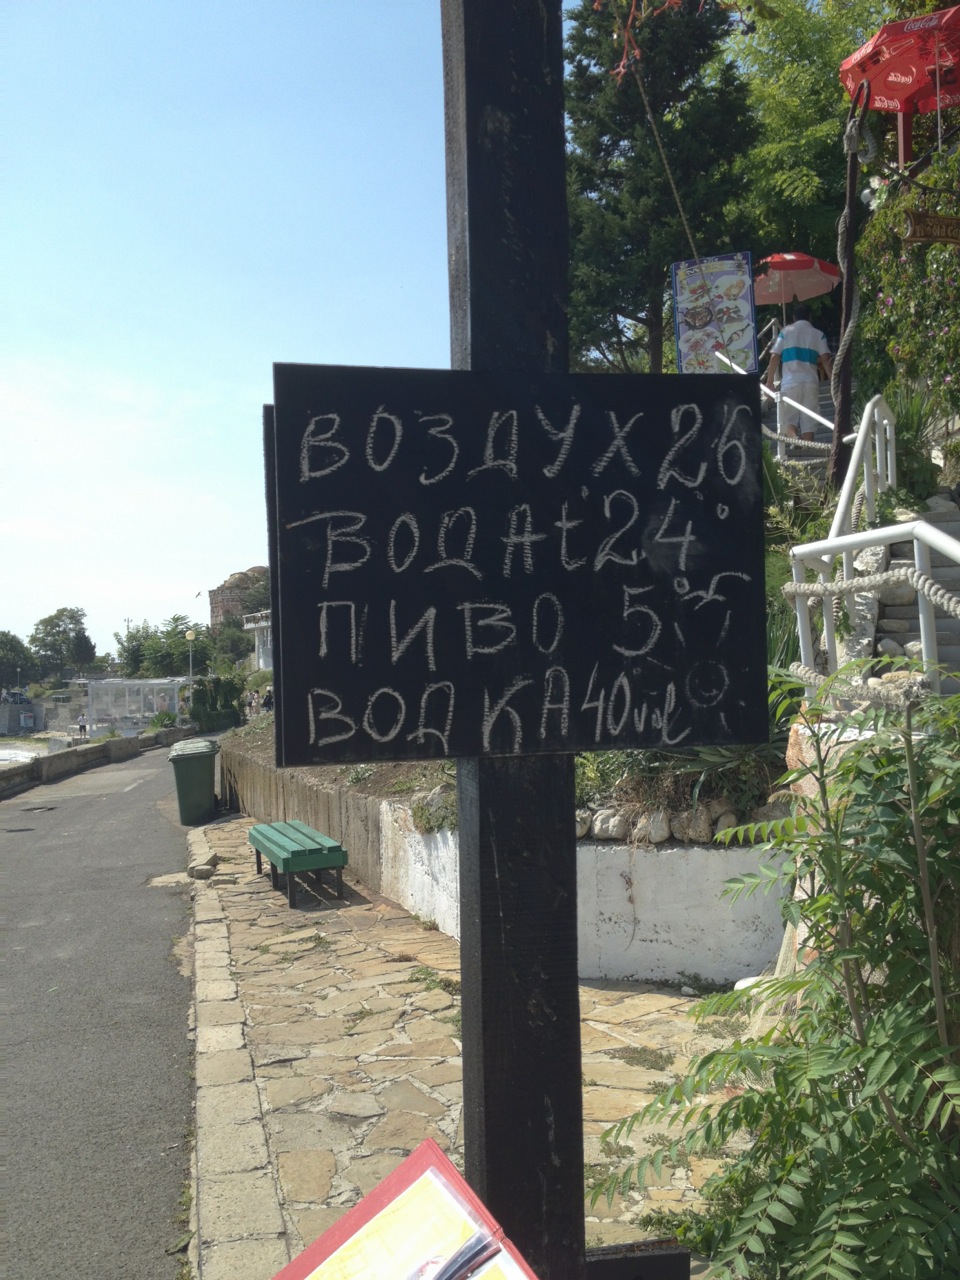 Coca-Cola
ВОЗДУХ 26
ВОДА t 24°
ПИВО 5°
ВОДКА 40 vol